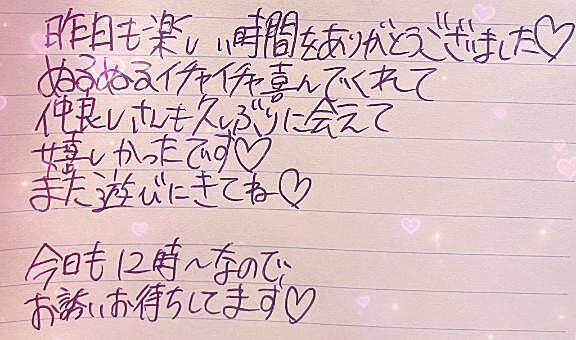 昨日も楽しい時間をありがとうございました♡
ぬるぬるイチャイチャ喜んでくれて
仲良しさんも久しぶりに会えて
嬉しかったでいす♡
また遊びにきてね♡
今日も12時〜なので、
お誘いお待ちしてます♡